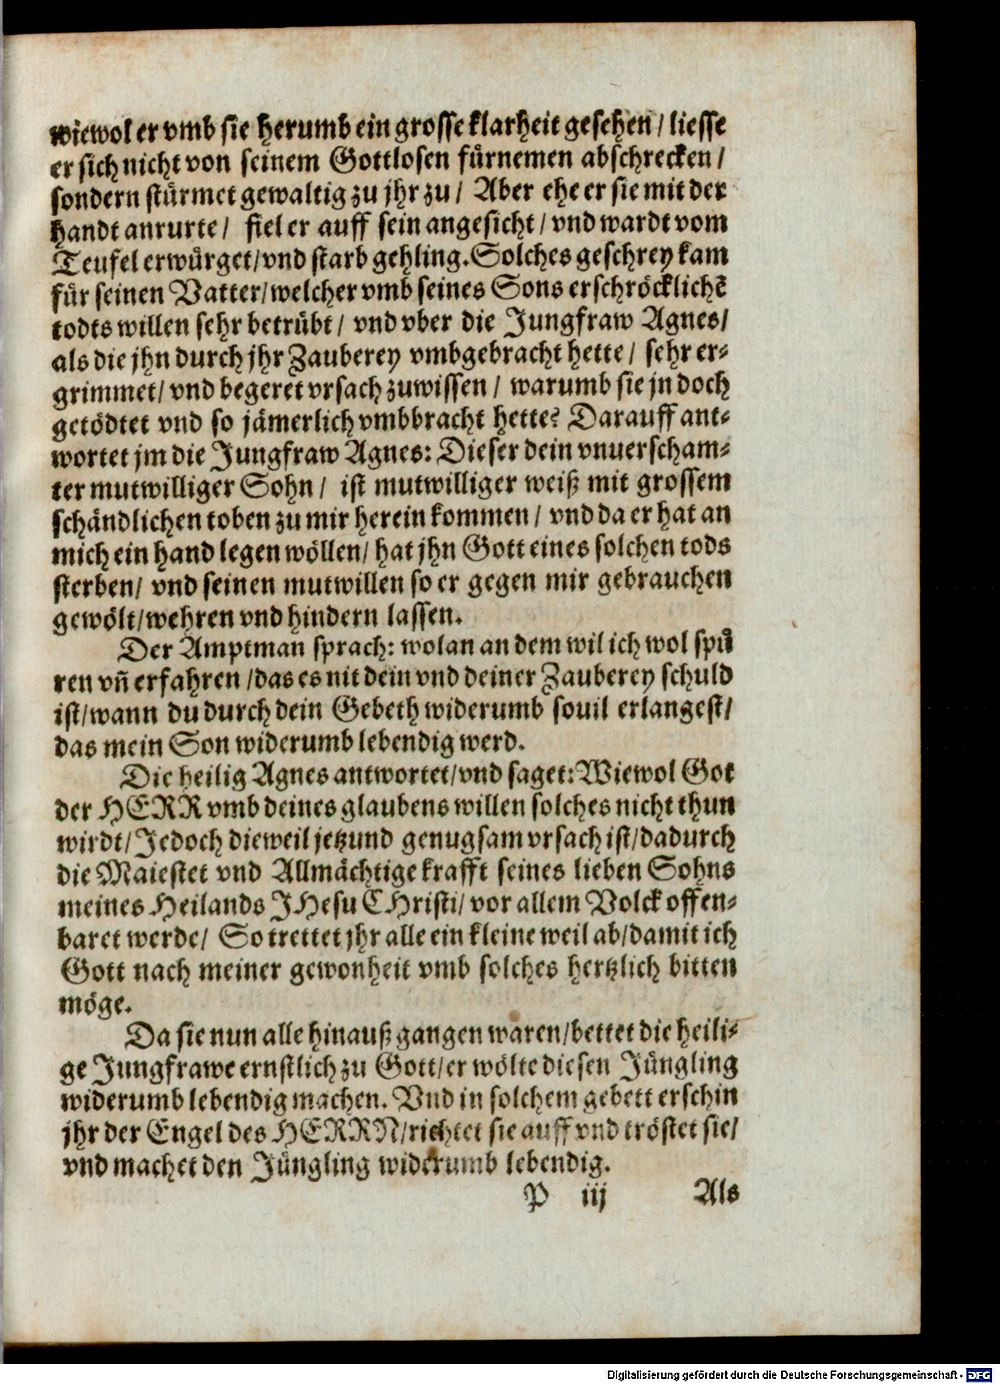 wiewol er vmb sie herumb ein grosse klarheit gesehen / liesse
er sich nicht von seinem Gottlosen fürnemen abschrecken /
sondern stürmet gewaltig zu jhr zu / Aber ehe er sie mit der
handt anrurte / fiel er auff sein angesicht / vnd wardt vom
Teufel erwürget / vnd starb gehling. Solches geschrey kam
für seinen Vatter / welcher vmb seines Sons erschröcklichē
todts willen sehr betrübt / vnd vber die Jungfraw Agnes /
als die jhn durch jhr Zauberey vmbgebracht hette / sehr er-
grimmet / vnd begeret vrsach zuwissen / warumb sie jn doch
getödtet vnd so jämerlich vmbbracht hette? Darauff ant-
wortet jm die Jungfraw Agnes: Dieser dein vnuerscham-
ter mutwilliger Sohn / ist mutwilliger weiß mit grossem
schändlichen toben zu mir herein kommen / vnd da er hat an
mich ein hand legen wöllen / hat jhn Gott eines solchen tods
sterben / vnd seinen mutwillen so er gegen mir gebrauchen
gewölt / wehren vnd hindern lassen.
Der Amptman sprach: wolan an dem wil ich wol spü
ren vñ erfahren / das es nit dein vnd deiner Zauberey schuld
ist / wann du durch dein Gebeth widerumb souil erlangest /
das mein Son widerumb lebendig werd.
Die heilig Agnes antwortet / vnd saget: Wiewol Got
der HERR vmb deines glaubens willen solches nicht thun
wirdt / Jedoch dieweil jetzund genugsam vrsach ist / dadurch
die Maiestet vnd Allmächtige krafft seines lieben Sohns
meines Heilands JHesu CHristi / vor allem Volck offen-
baret werde / So trettet jhr alle ein kleine weil ab / damit ich
Gott nach meiner gewonheit vmb solches hertzlich bitten
möge.
Da sie nun alle hinauß gangen waren / bettet die heili-
ge Jungfrawe ernstlich zu Gott / er wölte diesen Jüngling
widerumb lebendig machen. Vnd in solchem gebett erschin
jhr der Engel des HERRN / richtet sie auff vnd tröstet sie /
vnd machet den Jüngling widerumb lebendig.
P iij Als
Digitalisierung gefördert durch die Deutsche Forschungsgemeinschaft - DFG